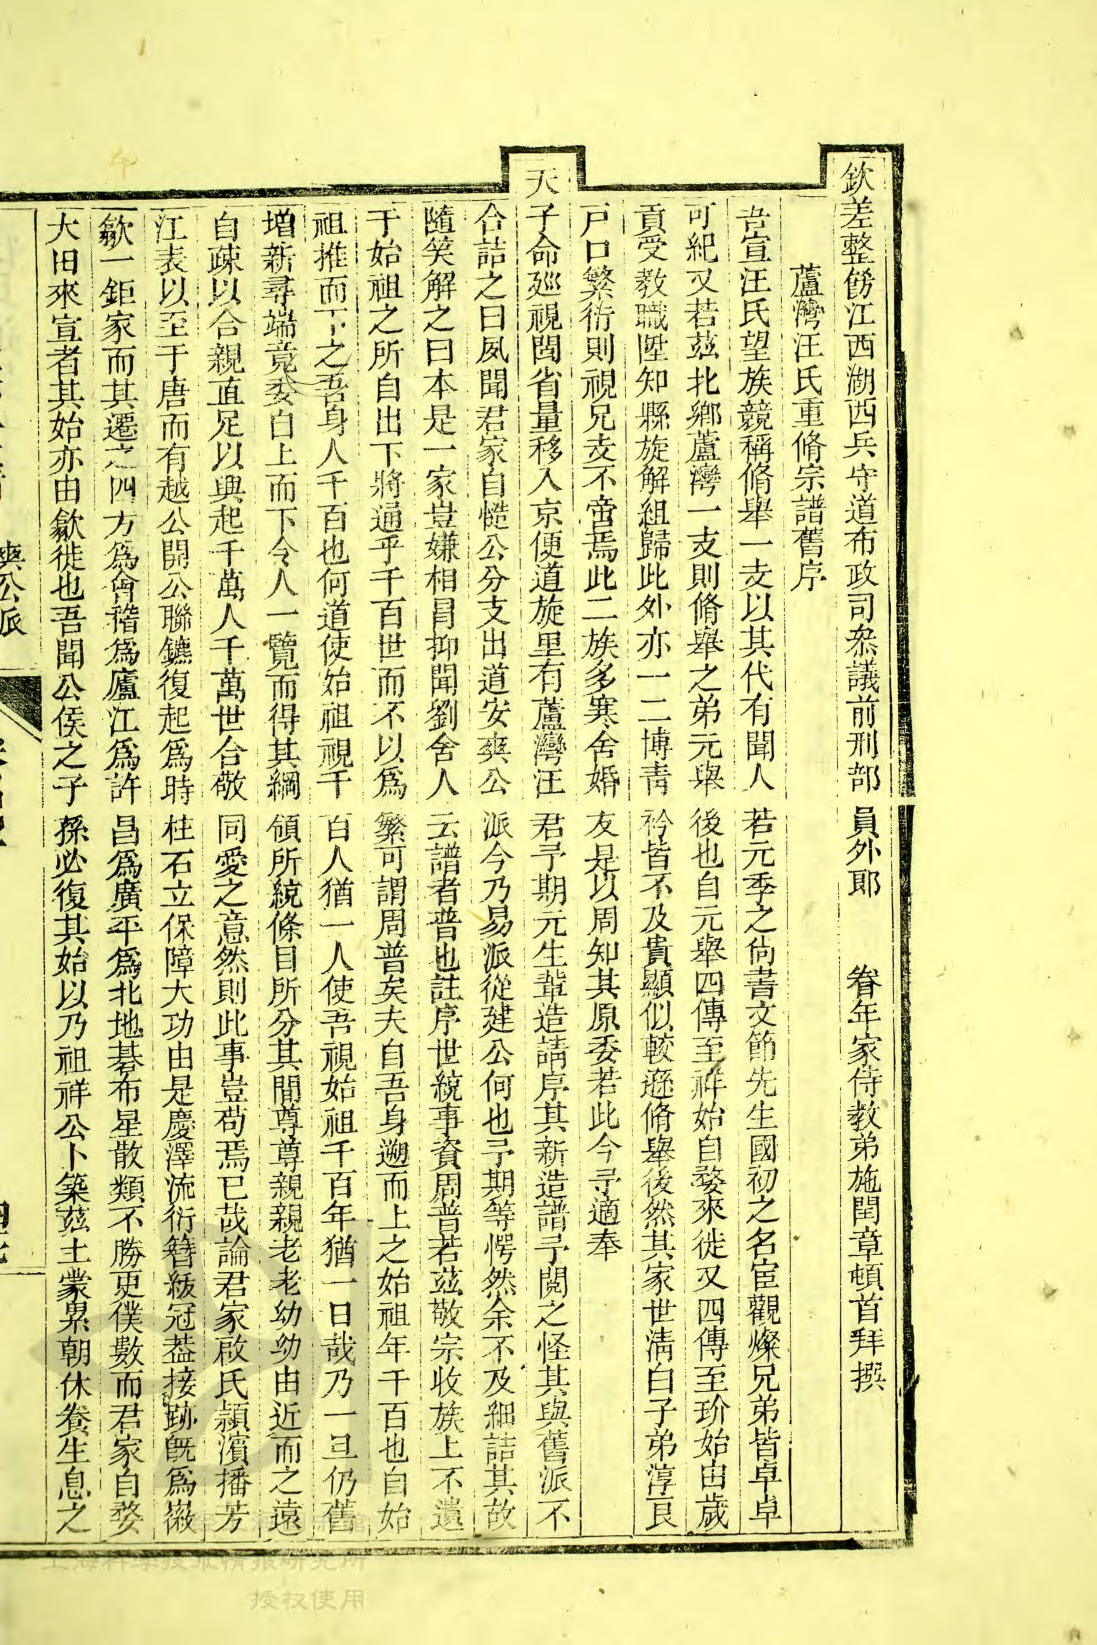 欽差整飭江西湖西兵守道布政司叅議前刑部員外郎　　眷年家侍教弟施閏章頓首拜撰
蘆灣汪氏重脩宗譜舊序
吾宣汪氏望族競稱脩舉一支以其代有聞人若元季之尚書文節先生國初之名宦觀燦兄弟皆卓卓
可紀又若茲北鄉蘆灣一支則脩舉之弟元舉後也自元舉四傳至祥始自婺來徙又四傳至玠始由歲
貢受教職陞知縣旋解組歸此外亦一二博青衿皆不及貴顯似較遜脩舉後然其家世淸白子弟淳良
戸口繁衍則視兄支不啻焉此二族多寒舍婚友是以周知其原委若此今予適奉
天子命廵視閩省量移入京便道旋里有蘆灣汪君予期元生輩造請序其新造譜予閱之怪其與舊派不
合詰之曰夙聞君家自慥公分支出道安爽公派今乃易派從建公何也予期等愕然余不及細詰其故
隨笑解之曰本是一家豈嫌相冐抑聞劉舍人云譜者普也註序世統事資周普若茲敬宗收族上不遺
于始祖之所自出下將通乎千百世而不以爲繁可謂周普矣夫自吾身遡而上之始祖年千百也自始
祖推而下之吾身人千百也何道使始祖視千百人猶一人使吾視始祖千百年猶一日哉乃一旦仍舊
增新尋端竟委自上而下令人一覽而得其綱領所統條目所分其間尊尊親親老老幼幼由近而之遠
自疎以合親直足以興起千萬人千萬世合敬同愛之意然則此事豈苟焉已哉論君家啟氏潁濱播芳
江表以至于唐而有越公開公聯鑣復起爲時柱石立保障大功由是慶澤流衍簪紱冠葢接跡旣爲嶶
歙一鉅家而其遷之四方爲會稽爲廬江爲許昌爲廣平爲北地碁布星散類不勝更僕數而君家自婺
大田來宣者其始亦由歙徙也吾聞公侯之子孫必復其始以乃祖祥公卜築茲土蒙累朝休養生息之
爽公派
上海科学技术情报研究所
授权使用